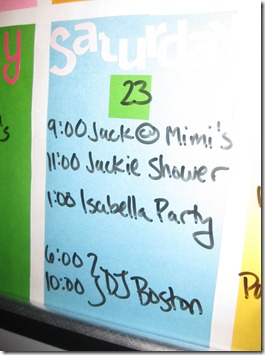 Saturday
23
9:00 Jack @ Mimi's
11:00 Jackie Shower
1:00 Isabella Party
6:00 } DJ Boston
10:00